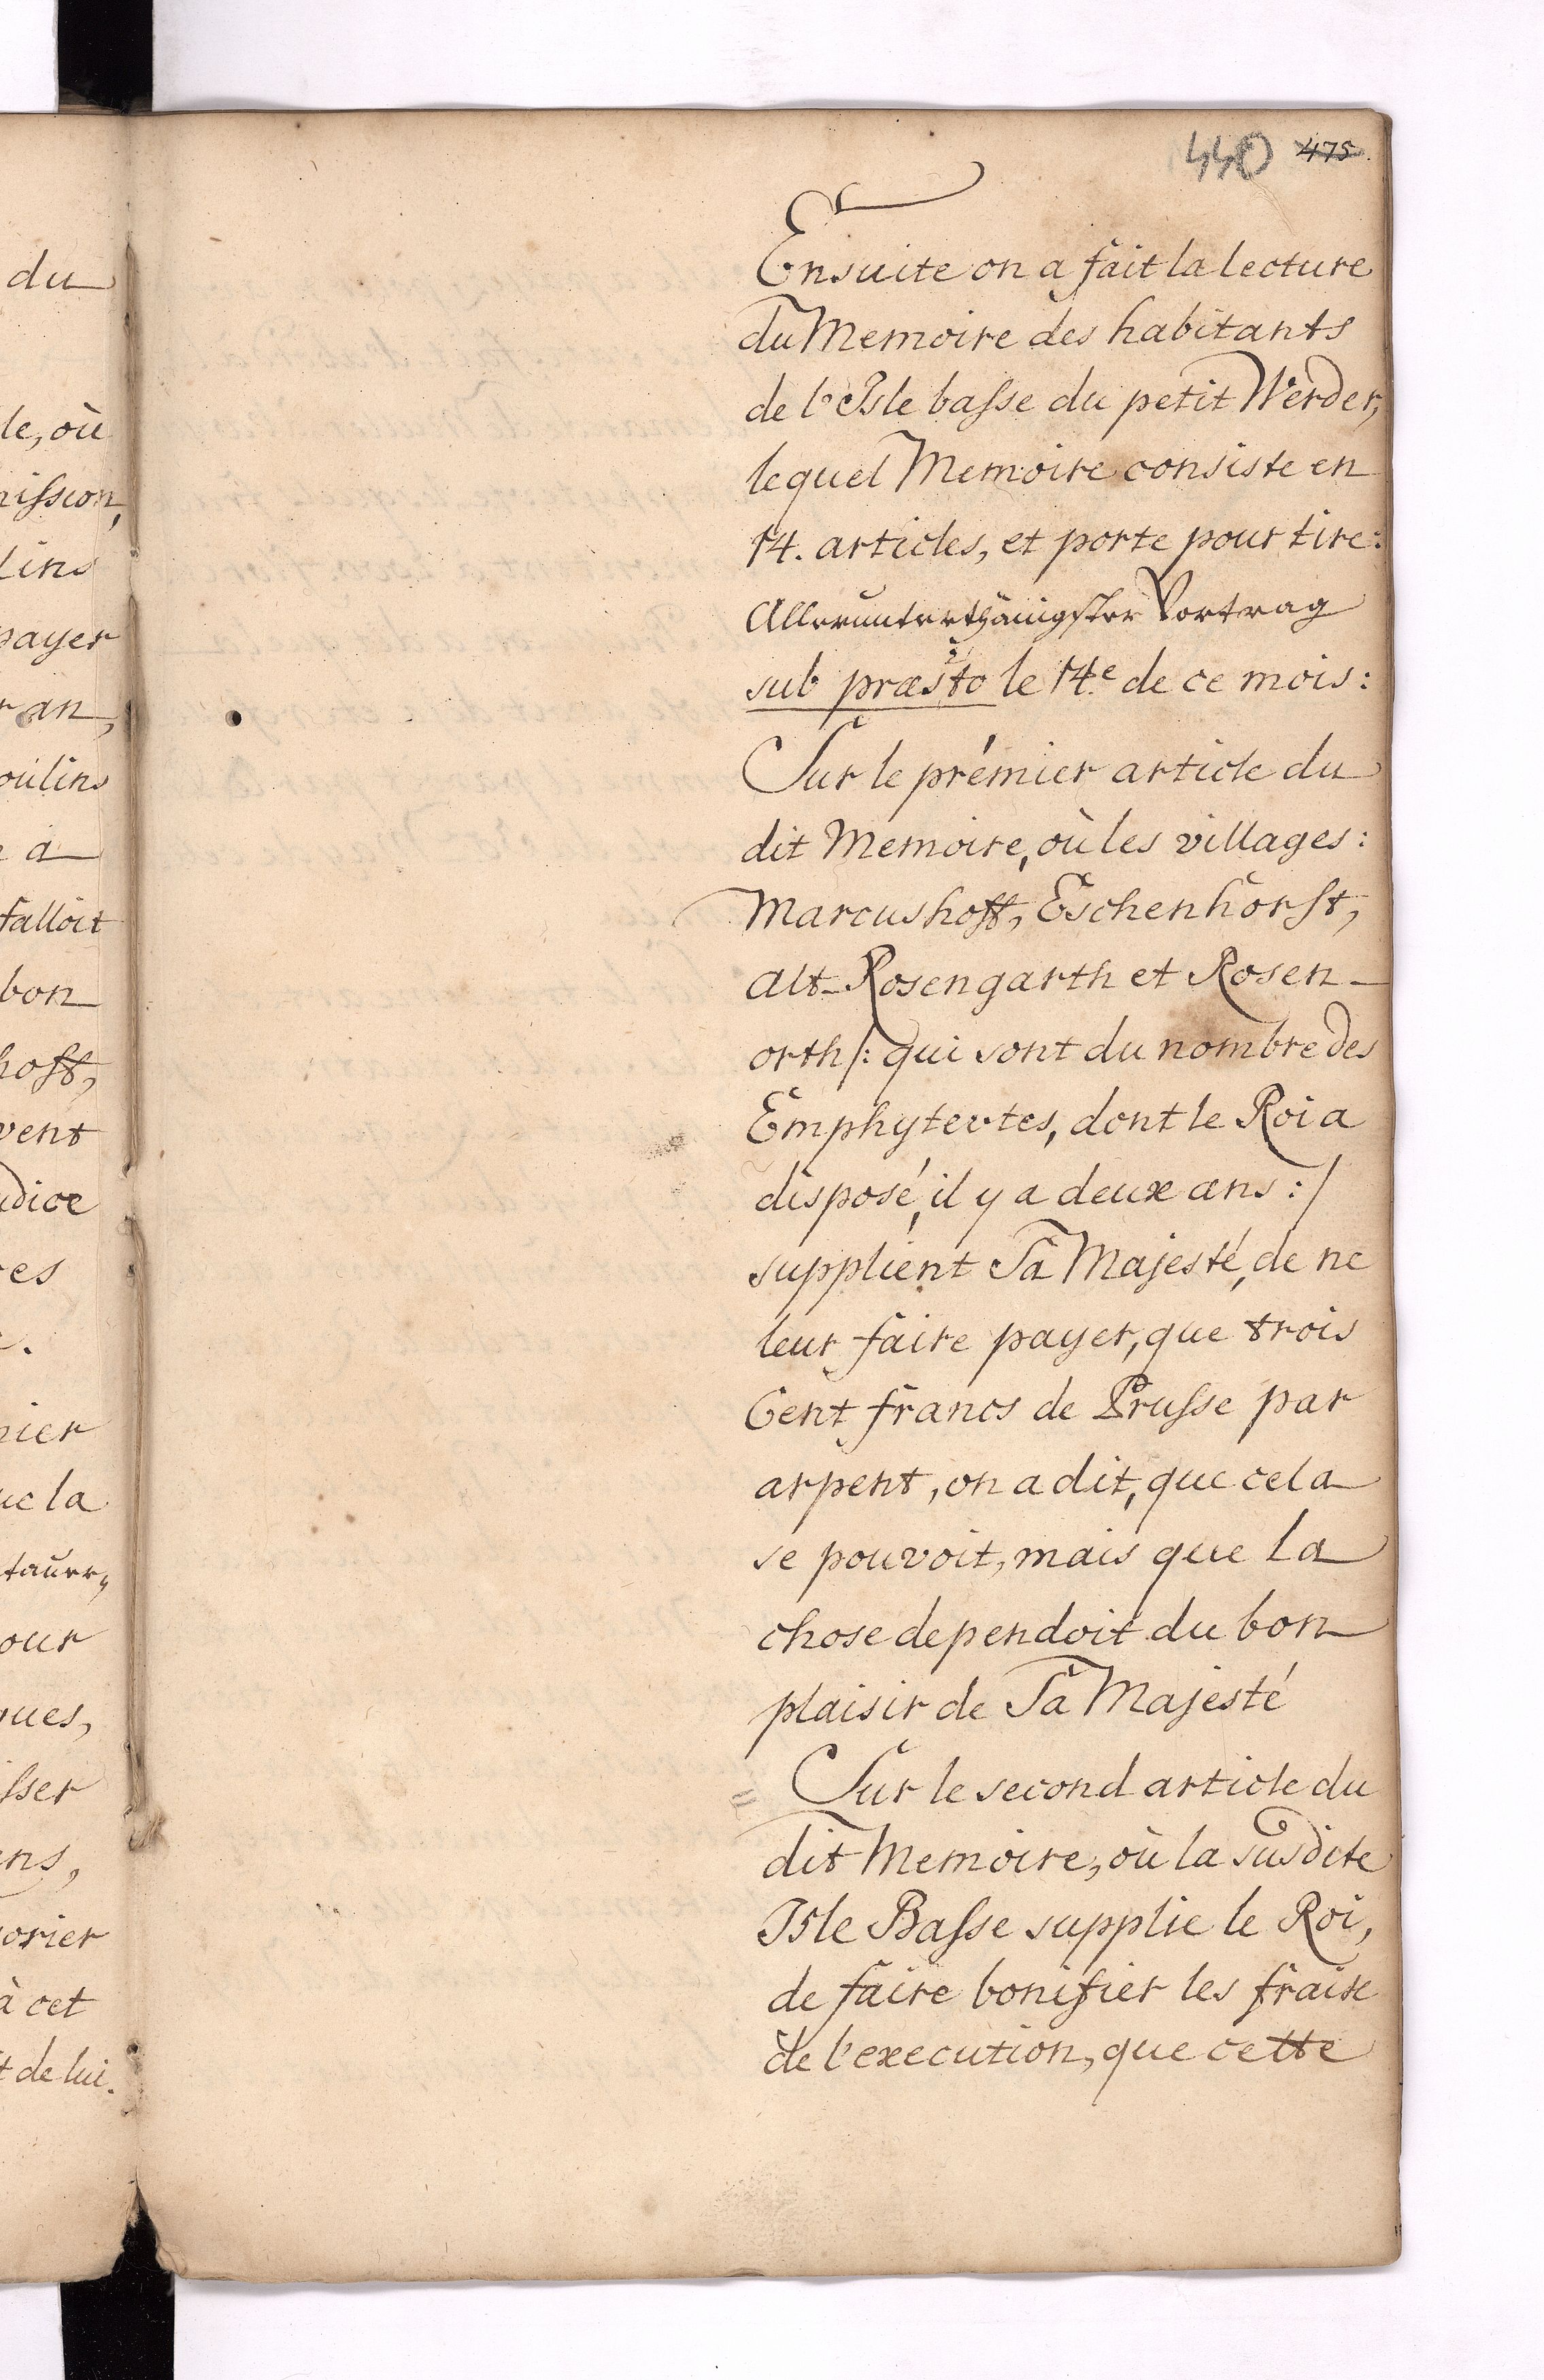 440 475.
Ensuite on a fait la lecture
du Memoire des habitants
de l'Isle basse du petit Werder,
lequel Memoire consiste en
14. articles, et porte pour titre:
Allerunterthänigster Vortrag
sub præsto le 14.e de ce mois:
Sur le prémier article du
dit Memoire, où les villages:
Marcushoff, Eschenhorst,
Alt-Rosengarth et Rosen-
orth /: qui sont du nombre des
Emphyteutes, dont le Roi a
disposé, il y a deux ans :/
supplient Sa Majesté, de ne
leur faire payer, que trois
Cent francs de Prusse par
arpent, on a dit, que cela
se pouvoit, mais que la
chose dependoit du bon
plaisir de Sa Majesté
= Sur le second article du
dit Memoire, où la susdite
Isle Basse supplie le Roi,
de faire bonifier les fraix
de l'execution, que cette
du
le, où
nission,
lins
payer
r an,
oulins
a
falloit
bon
hoff,
vent
udice
res
nier
ue la
our
ques,
isser
ens,
sorier
à cet
t de lui.